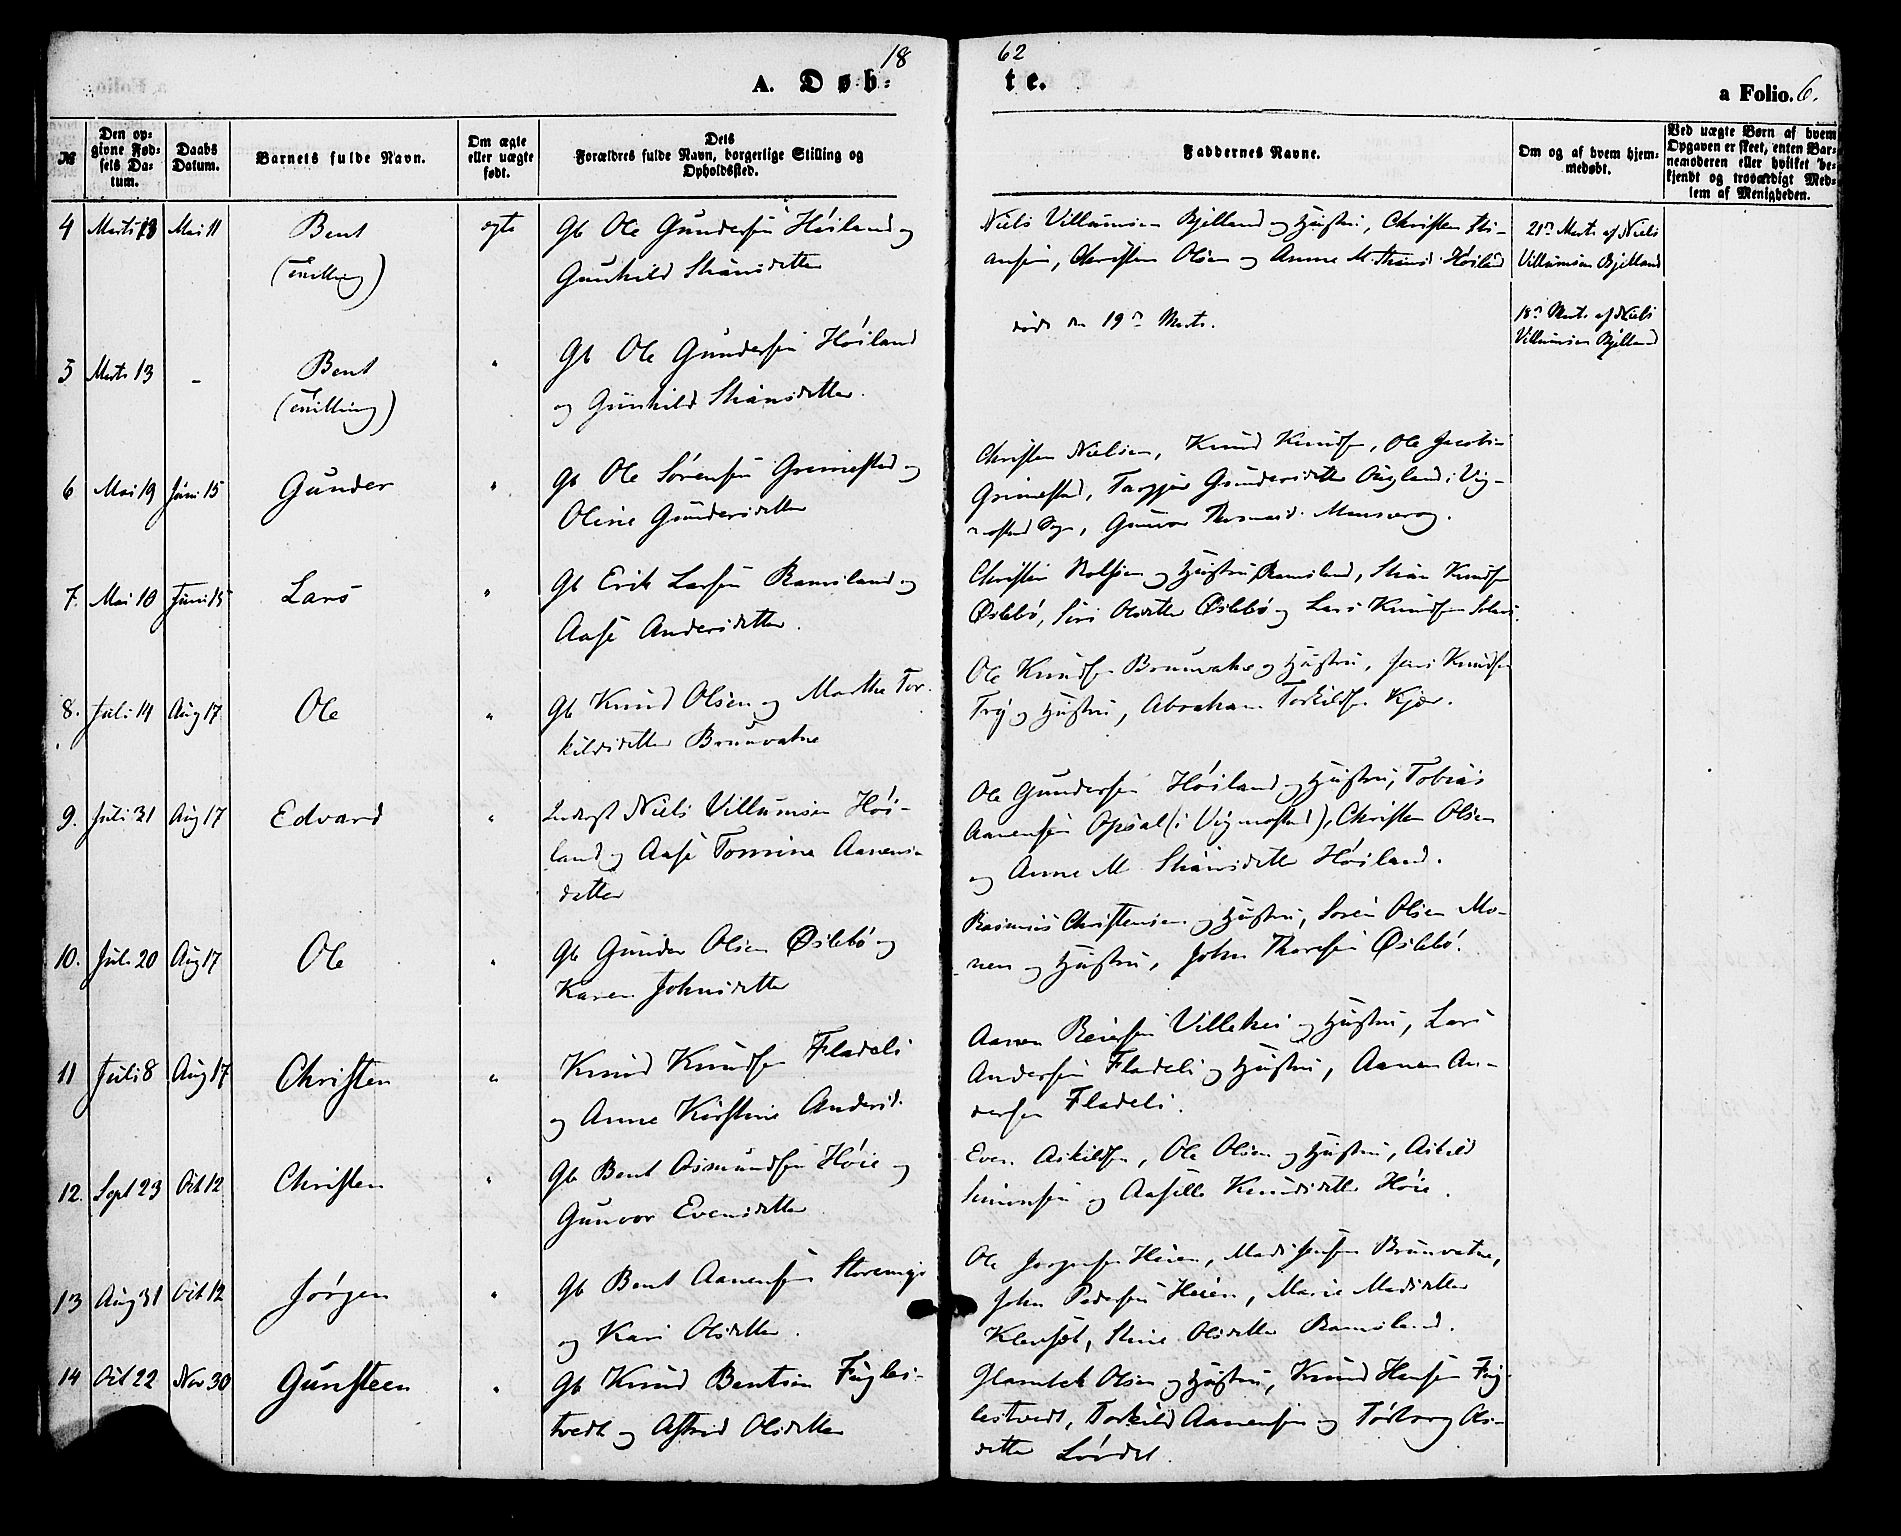 18 62
A. Døb= te. a Folio. 6.
№ Den opgivne Fødsels Datum. Daabs Datum. Barnets fulde Navn. Om ægte eller uægte født. Dets Forældres fulde Navn, borgerlige Stilling og Opholdssted. Faddernes Navne. Om og af hvem hjemmedøbt. Ved uægte Børn af hvem Opgaven er skeet, enten Barnemoderen eller hvilket bekjendt og troværdigt Medlem af Menigheden.
4 Marts 13 Mai 11 Bent ægte Gb Ole Gundersen Høiland og Niels Villumsen Bjelland og Hustru, Christen
(Tvilling) Gunhild Stiansdatter Christen Olsen og Anne M. Stiansd. Høiland
21de Marts af Niels
Villumsen Bjelland
5 Marts 13 - Bent " Gb Ole Gundersen Høiland døde den 19de Marts.
(Tvilling) og Gunhild Stiansdatter.
18de Marts af Niels
Villumsen Bjelland
6 Mai 19 Juni 15 Gunder " Gb Ole Sørensen Grimestad og Christen Nielsen, Knud Knudsen, Ole Jacobs-
Oline Gundersdatter Grimestad, Gundersdatter i Vig-
mostad Sogn, Gunvor
7. Mai 10 Juni 15 Lars " Gb Erik Larsen Ramsland og Christen og Hustru Ramsland, Stian Knudsen
Aase Andersdatter. Øslebø, Siri Olsdatter Øslebø og Lars Knudsen
8. Juli 14 Aug 17 Ole " Gb Knud Olsen og Marthe Tor- Ole Knudsen Brunvatne og Hustru, Jens Knudsen
kildsdatter Brunvatne Try og Hustru, Abraham Torkildsen Kjær.
9. Juli 31 Aug 17 Edvard " Inderst Niels Villumsen Høi- Ole Gundersen Høiland og Hustru, Tobias
land og Aase Tomine Aanens- Aanensen Opsal (i Vigmostad), Christen Olsen
datter og Anne M. Stiansdatter Høiland.
10. Juli 20 Aug 17 Ole " Gb Gunder Olsen Øslebø og Rasmus Christensen og Hustru, Søren Olsen Mo-
Karen Johnsdatter nen og Hustru, John Thorsen Øslebø.
11 Juli 8 Aug 17 Christen " Knud Knudsen Fladeli Aanen Reiersen og Hustru, Lars
og Anne Kirstine Andersd. Andersen Fladeli og Hustru, Aanen An-
dersen Fladeli.
12. Sept 23 Oct 12 Christen " Gb Bent Asmundsen Høie og Even Askildsen, Ole Olsen og Hustru, Askild
Gunvor Evensdatter Simonsen og Knudsdatter Høie.
13 Aug 31 Oct 12 Jørgen " Gb Bent Aanensen Ole Jørgensen Heien, Mads Jensen Brunvatne,
og Kari Olsdatter. John Pedersen Heien, Marie Madsdatter
Stine Olsdatter Ramsland.
14 Oct 22 Nov 30 Gunsteen " Gb Knud Bentsen Fugles- Olsen og Hustru, Knud Hansen Fug-
tvedt og Astrid Olsdatter lestvedt, Torkild Aanensen og Torborg Ols-
datter